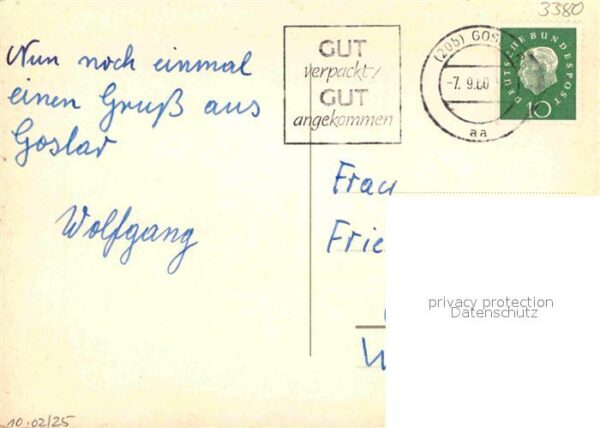 3380
GUT
verpackt/
GUT
angekommen
(20b) GOSLAR
-7. 9.60
aa
DEUTSCHE BUNDESPOST
10
Nun noch einmal
einen Gruß aus
Goslar
Wolfgang
Frau
Frie
privacy protection
Datenschutz
10.02/25